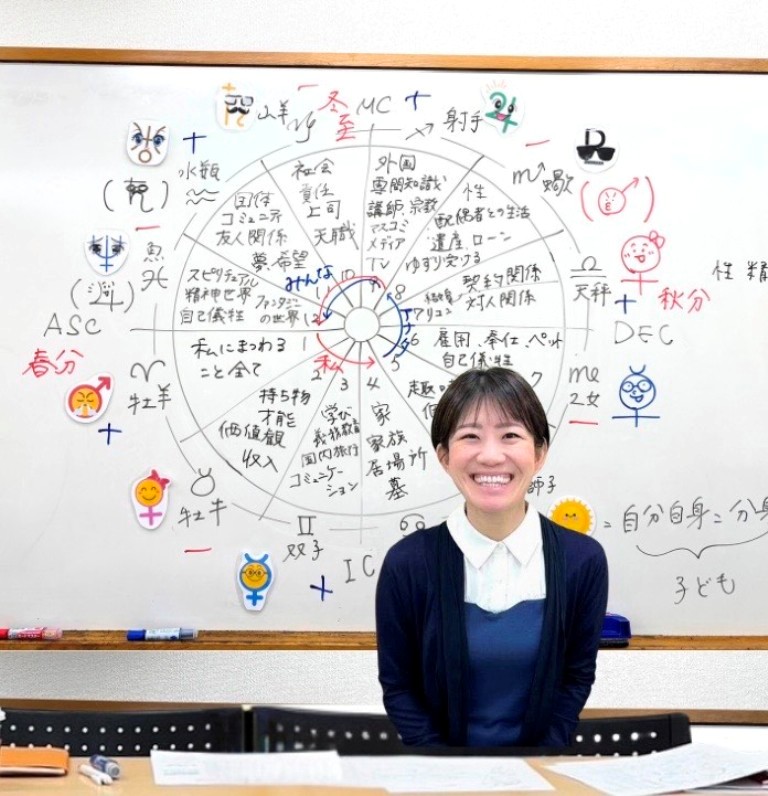 山羊
冬至
MC
+
射手
水瓶
+
蠍
魚
ASC
春分
牡羊
+
牡牛
双子
+
IC
天秤
+
秋分
DEC
乙女
性 精
社会
責任
上司
天職
外国
専門知識
講師、宗教
マスコミ
メディア
TV
性
配偶者との生活
遺産、ローン
ゆずり受ける
団体
コミュニティ
友人関係
夢、希望
みんな
スピリチュアル
精神世界
自己犠牲
ファンタジー
の世界
契約関係
対人関係
雇用、奉仕、ペット
自己犠牲
私にまつわる
こと全て
私
持ち物
才能
価値観
収入
学び
義務教育
国内旅行
コミュニケー
ション
家
家族
居場所
墓
10
9
8
7
6
5
4
3
2
1
12
= 自分自身 = 分身
子ども